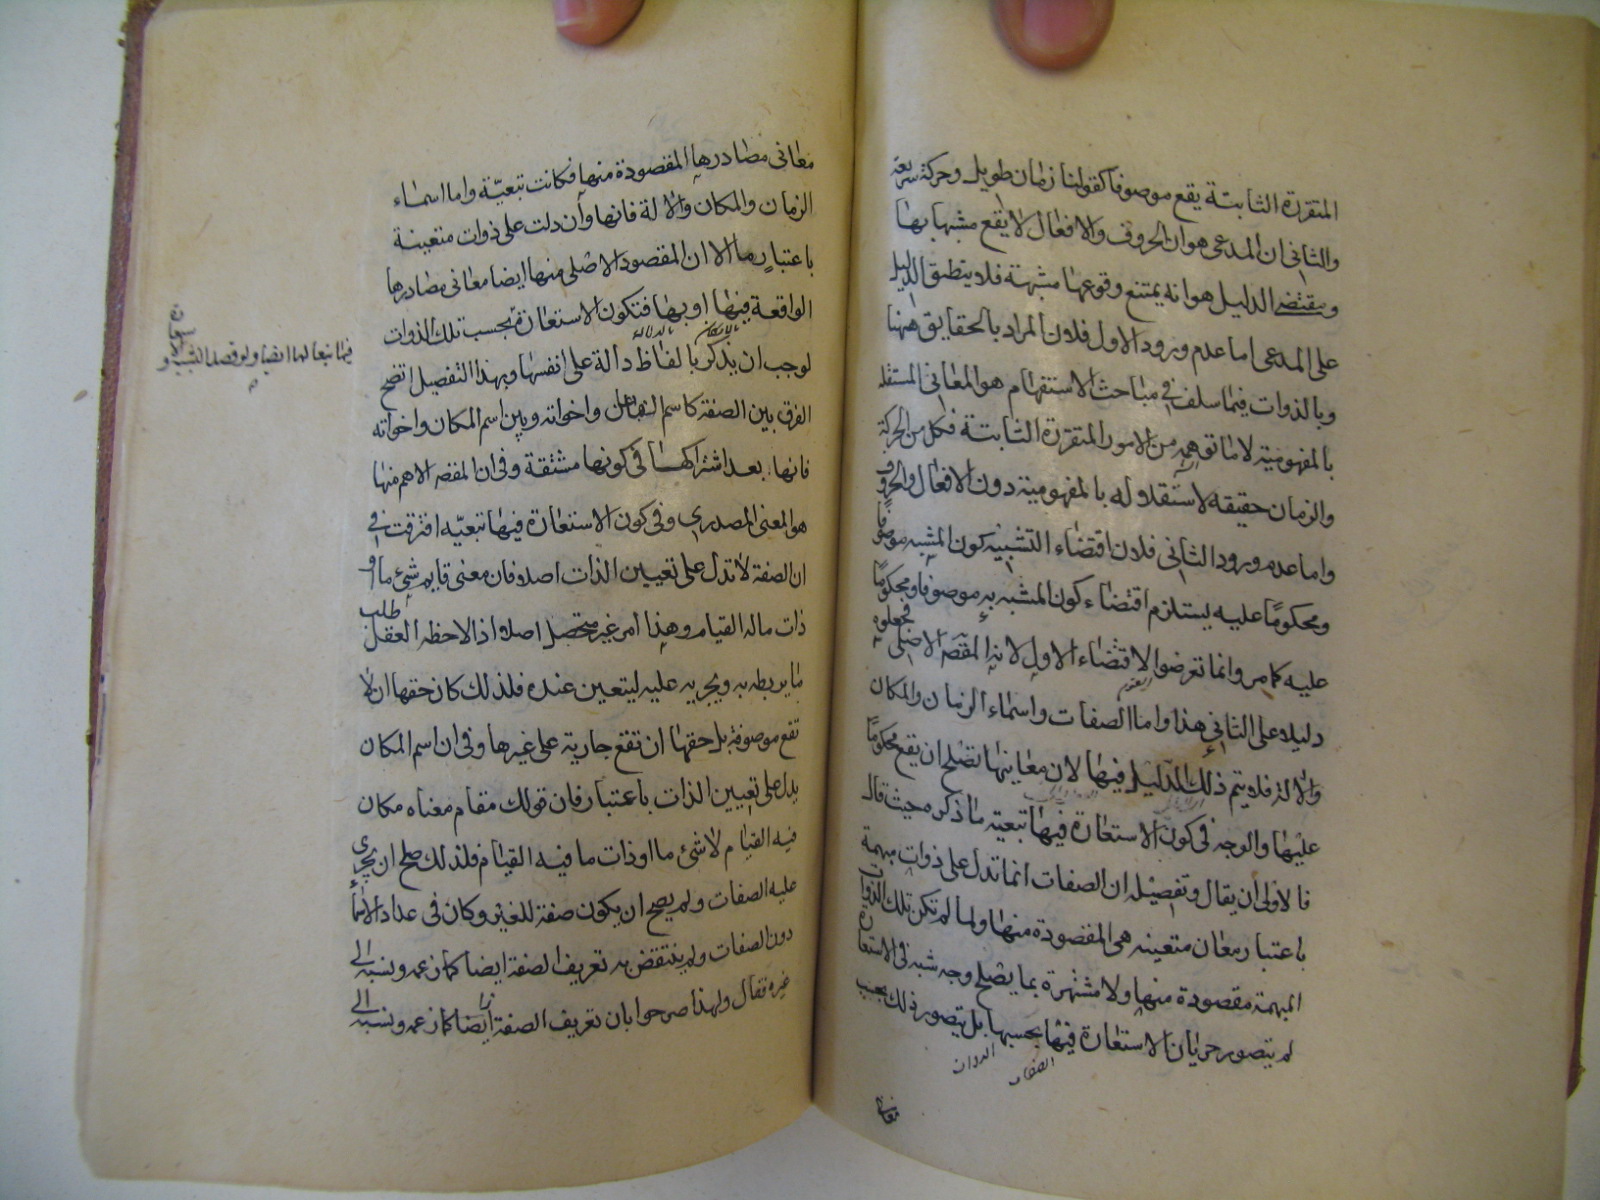 المتقررة الثابتة يقع موصوفا كقولنا زمان طويل وحركة سريعة
والثاني ان المدعى هو ان الحروف والافعال لا يقع مشبها بها
ومقتضى الدليل هو انه يمتنع وقوعها مشبهة فلا ينطبق الدليل
على المدعى اما عدم ورود الاول فلان المراد بالحقايق ههنا
وبالذوات فيما سلف في مباحث الاستفهام هو المعاني المستقلة
بالمفهومية لا ما توهم من الامور المتقررة الثابتة فكل من الحركة
والزمان حقيقة لاستقلاله بالمفهومية دون الافعال والحروف
واما عدم ورود الثاني فلان اقتضاء التشبيه كون المشبه موصوفا
ومحكوما عليه يستلزم اقتضاء كون المشبه به موصوفا ومحكوما
عليه كما مر وانما تعرضوا لاقتضاء الاول لانه المقصد الاصلي فجعلوه
دليلا على الثاني هذا واما الصفات واسماء الزمان والمكان
والالة فلا يتم ذلك الدليل فيها لان معانيها تصلح ان يقع محكوما
عليها والوجه في كون الاستعارة فيها تبعية ما ذكره حيث قال
فالاولى ان يقال وتفصيله ان الصفات انما تدل على ذوات مبهمة
باعتبار معان متعينه هي المقصودة منها ولما لم تكن تلك الذوات
المبهمة مقصودة منها ولا مشتهرة بما يصلح وجه شبه في الاستعارة
لم يتصور جريان الاستعارة فيها بحسبها بل يتصور ذلك بحسب
الصفات
الذوات
معاني
معاني مصادرها المقصودة منها فكانت تبعيّة واما اسماء
الزمان والمكان والالة فانها وان دلت على ذوات متعينة
باعتبار ما الا ان المقصود الاصلي منها ايضا معاني مصادرها
الواقعة فيها او بها فتكون الاستعارة بحسب تلك الذوات
فيها تبعا لها ايضا ولو قصد التشبيه
لوجب ان يذكر بالفاظ دالة على انفسها وبهذا التفصيل اتضح
الفرق بين الصفة كاسم الفاعل واخواته وبين اسم المكان واخواته
فانها بعد اشتراكها في كونها مشتقة وفي ان المقصد الاهم منها
هو المعنى المصدري وفي كون الاستعارة فيها تبعيّه افترقت في
ان الصفة لا تدل على تعيين الذات اصلا فان معنى قايم شئ ما او
ذات ما له القيام وهذا امر غير متحصل اصلا اذا لاحظه العقل طلب
ما يربطه به ويجريه عليه ليتعين عنده فلذلك كان حقها ان لا
تقع موصوفة بل حقها ان تقع جارية على غيرها وفي ان اسم المكان
يدل على تعيين الذات باعتبار فان قولك مقام معناه مكان
فيه القيام لا شئ ما او ذات ما فيه القيام فلذلك صلح ان يجرى
عليه الصفات ولم يصح ان يكون صفة للغير وكان في عداد الاسماء
دون الصفات ولم ينتقض به تعريف الصفة ايضا كما زعمه ونسبه الى
غيره فقال ولهذا صرحوا بان تعريف الصفة ايضا كما زعمه ونسبه الى